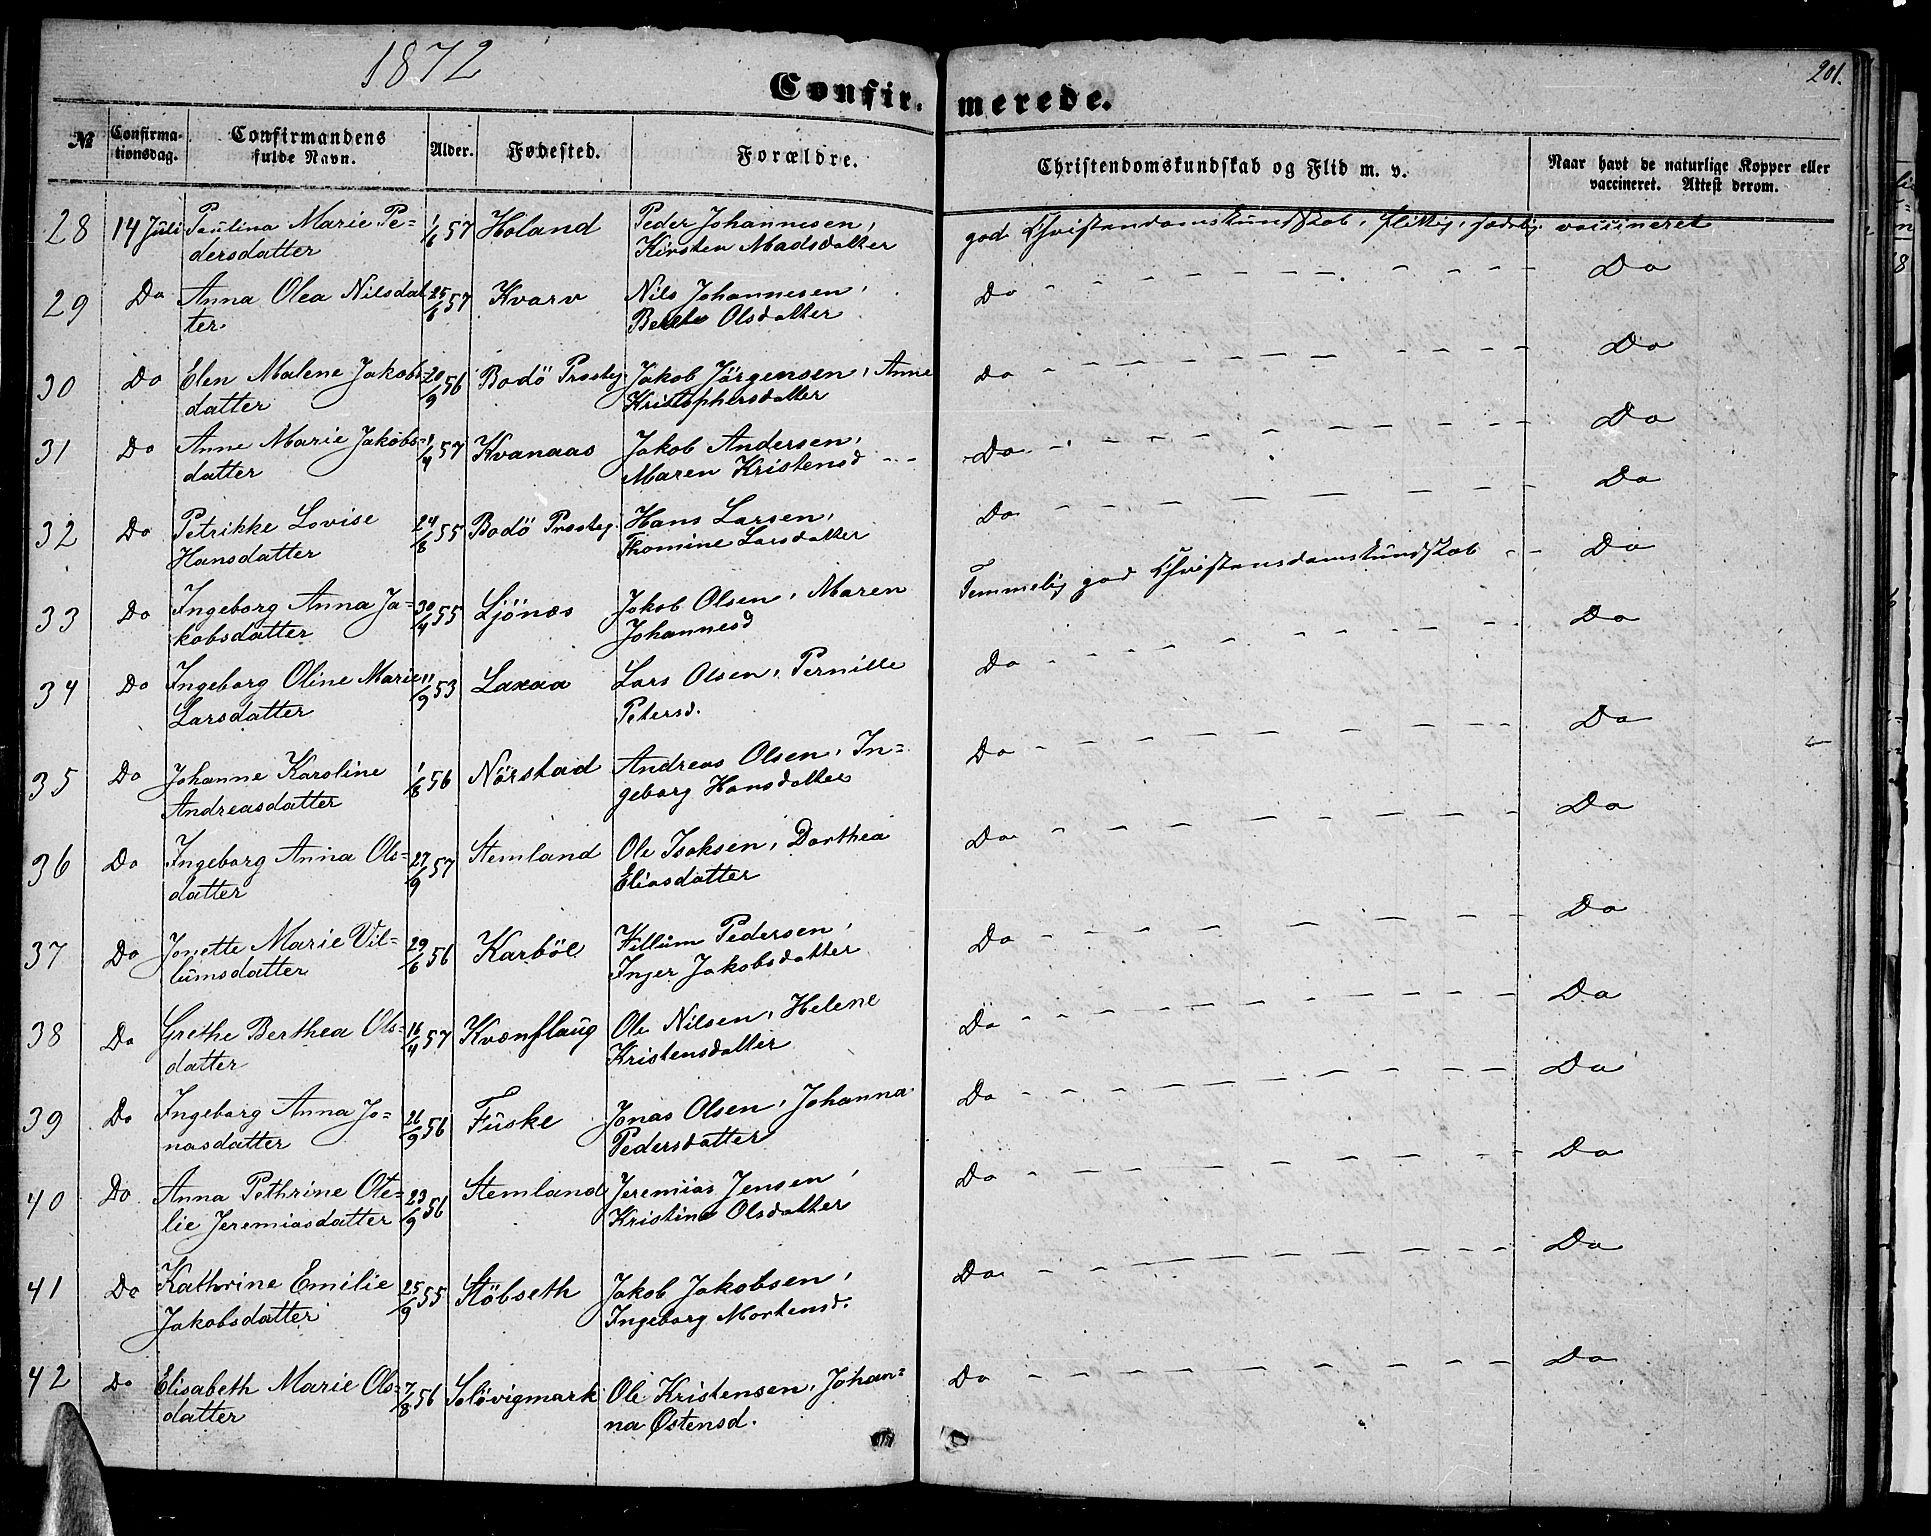 1872
201.
Confir. merede.
№ Confirma-tionsdag. Confirmandens fulde Navn. Alder. Fødested. Forældre. Christendomskundskab og Flid m. v. Naar havt de naturlige Kopper eller vaccineret. Attest derom.
28 14 Juli Paulina Marie Pe- 1/6 57 Holand Peder Johannesen, god Christendomskundskab, flittig, sædelig. vaccineret
dersdatter Kirsten Madsdatter
29 Do Anna Olea Nilsdat 25/6 57 Kvarv Nils Johannesen, Do - - - - - - - - Do
ter Berete Olsdatter
30 Do Elen Malene Jakobs- 20/9 56 Bodö Prosteg. Jakob Jörgensen, Anne Do - - - - - - - - Do
datter Kristophersdatter
31 Do Anne Marie Jakobs- 1/4 57 Kvanaas Jakob Andersen, Do - - - - - - - - Do
datter Maren Kristensd - -
32 Do Petrikke Lovise 24/8 55 Bodö Prosteg. Hans Larsen, Do - - - - - - - - Do
Hansdatter Thomine Larsdatter
33 Do Ingeborg Anna Ja- 30/4 55 Ljönes Jakob Olsen, Maren Temmelig god Christensdomskundskab - - Do
kobsdatter Johannesd
34 Do Ingeborg Oline Marie 11/9 53 Laxaa Lars Olsen, Pernille Do - - - - - - - - Do
Larsdatter Petersd.
35 Do Johanne Karoline 1/8 56 Nörstad Andreas Olsen, In= Do - - - - - - - - Do
Andreasdatter geborg Hansdatter
36 Do Ingeborg Anna Ols= 27/9 57 Stemland Ole Isaksen, Dorthea Do - - - - - - - - Do
datter Eliasdatter
37 Do Jonette Marie Vil= 29/6 56 Karböl Villum Pedersen, Do - - - - - - - - Do
lumsdatter Inger Jakobsdatter
38 Do Grethe Berthea Ols= 16/4 57 Kvænflaug Ole Nilsen, Helene Do - - - - - - - - Do
datter Kristensdatter
39 Do Ingeborg Anna Jo- 26/9 56 Fuske Jonas Olsen, Johanna Do - - - - - - - - Do
nasdatter Pedersdatter
40 Do Anna Pethrine Ote= 23/9 56 Stemland Jeremias Jensen, Do - - - - - - - - Do
lie Jeremiasdatter Kristine Olsdatter
41 Do Kathrine Emilie 25/9 55 Stöbseth Jakob Jakobsen, Do - - - - - - - - Do
Jakobsdatter Ingeborg Mortensd.
42 Do Elisabeth Marie Ols= 7/8 56 Solövigmark Ole Kristensen, Johan= Do - - - - - - - - Do
datter na Østensd.